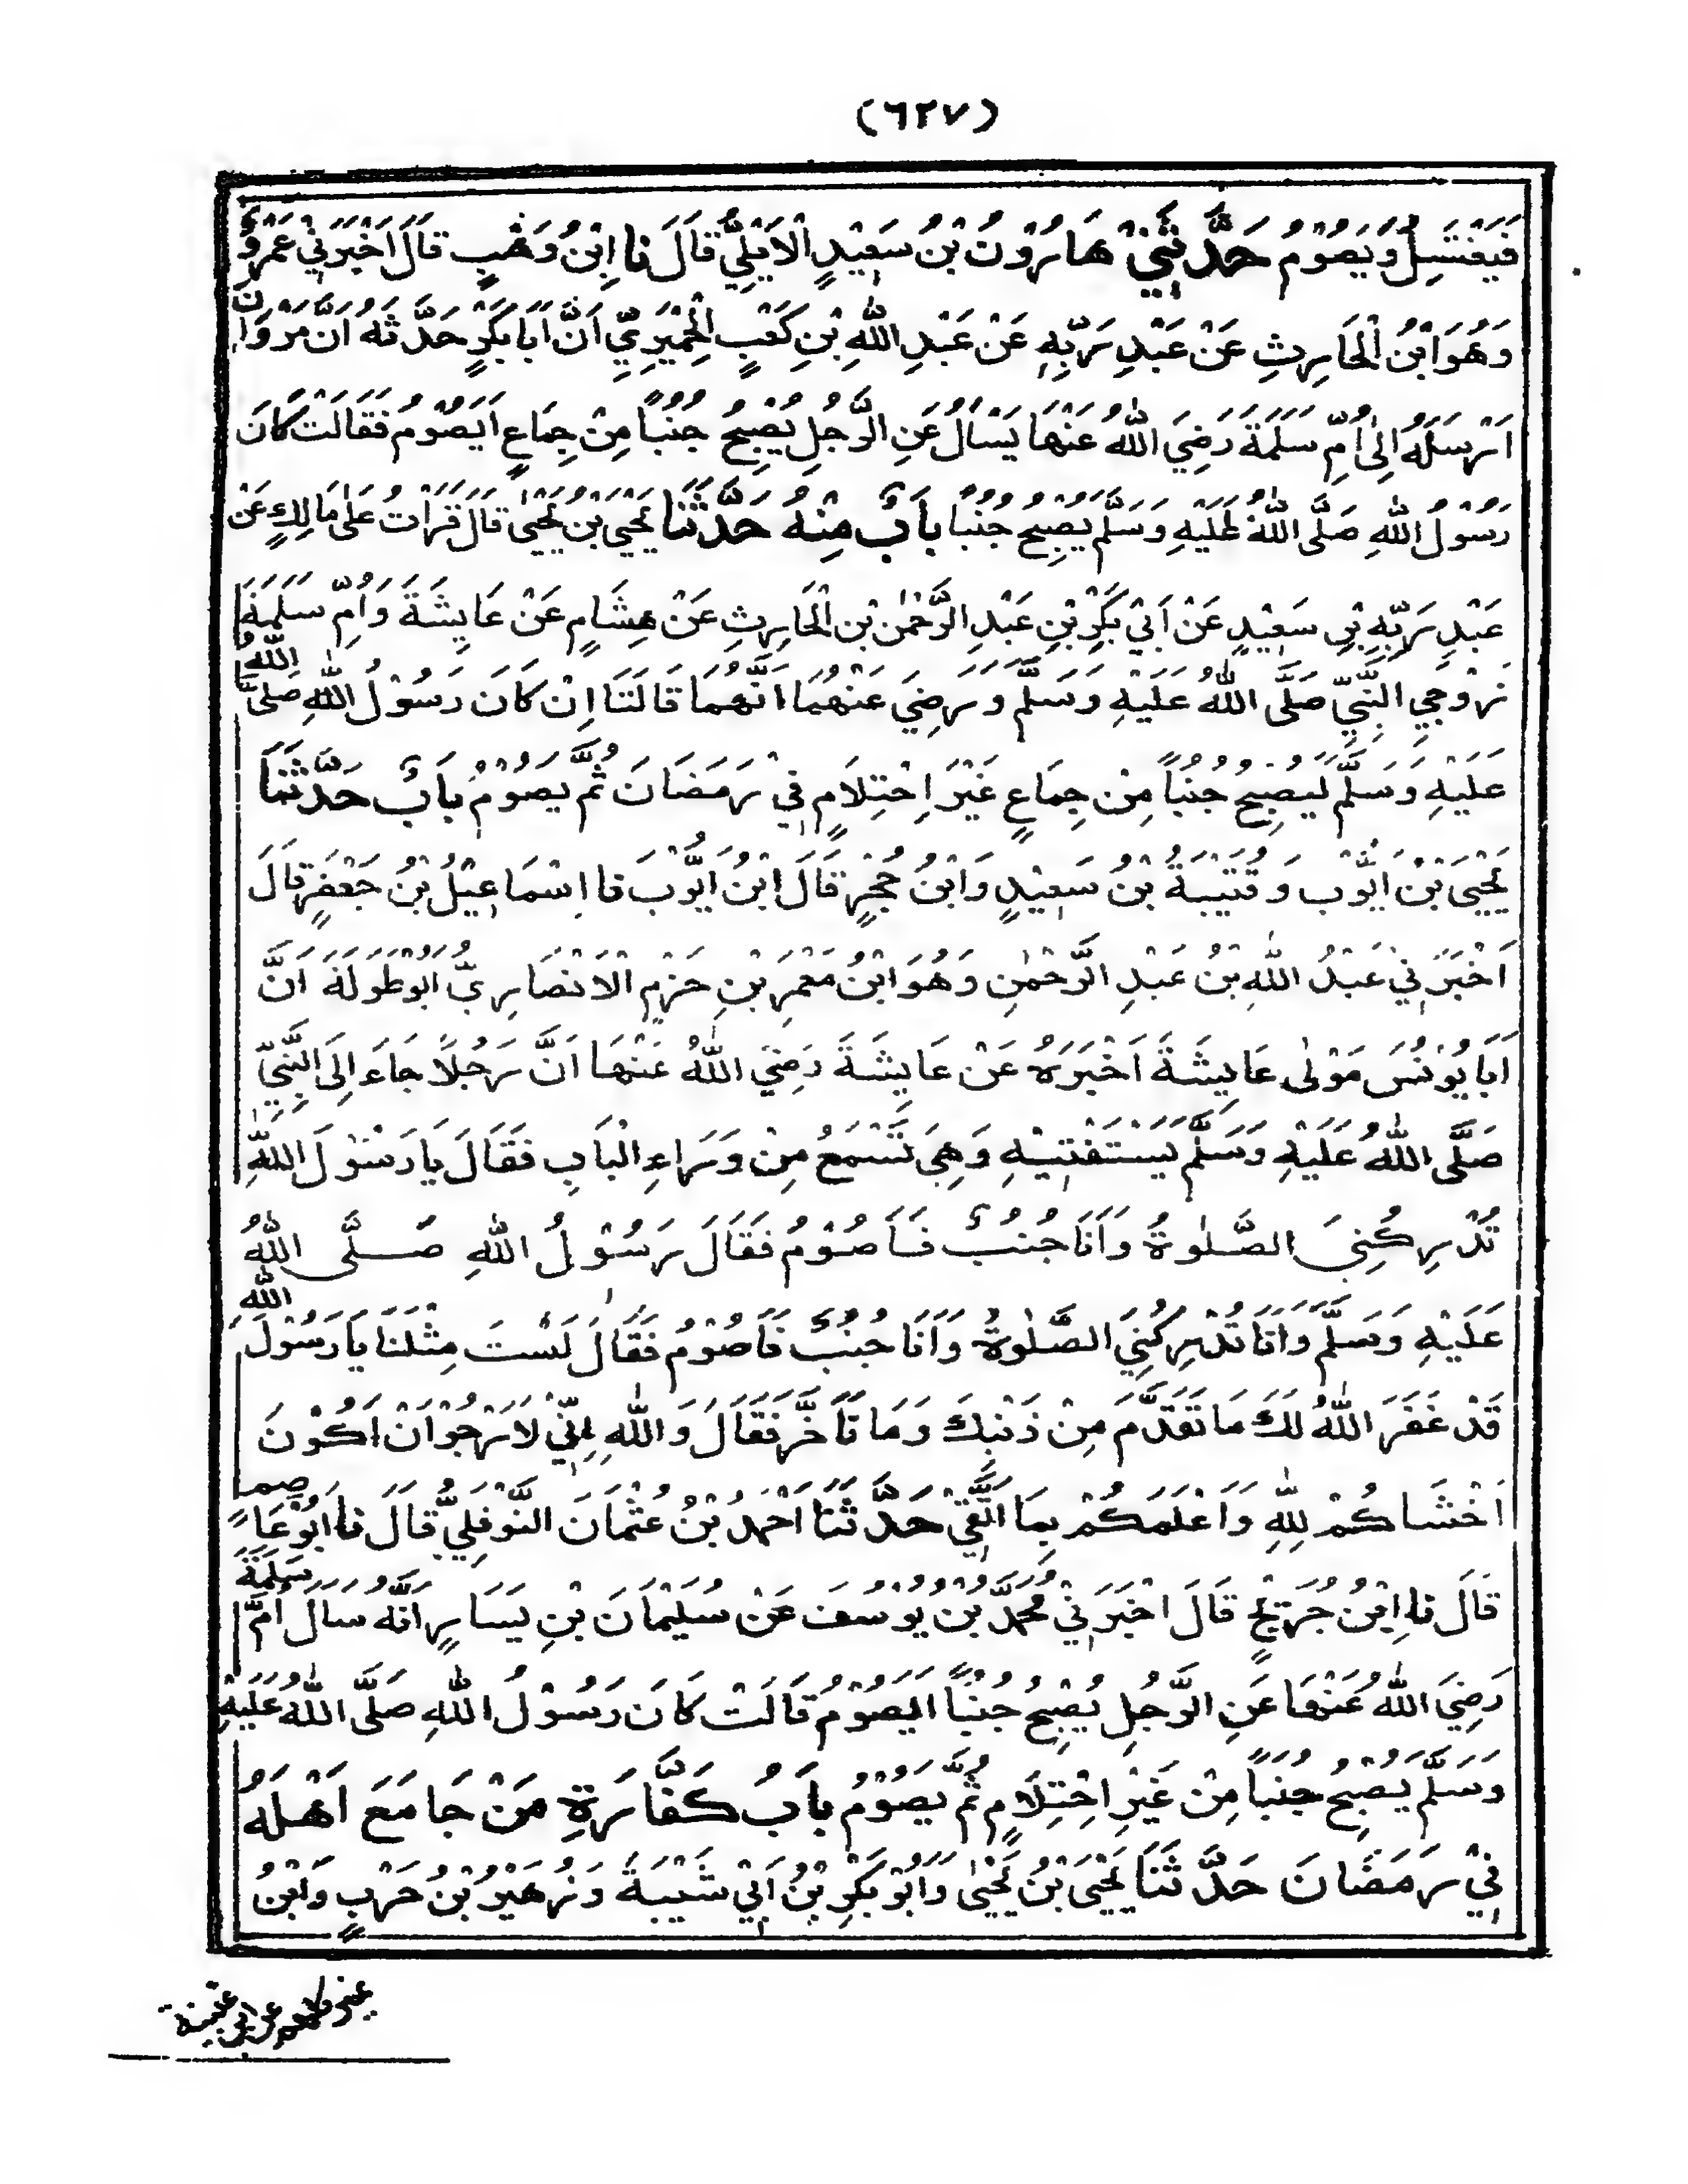 (٦٢٧)
فَيَغْتَسِلُ وَيَصُوْمُ حَدَّثَنِيْ هَارُوْنُ بْنُ سَعِيْدٍ الْاَيْلِيُّ قَالَ نَا ابْنُ وَهْبٍ قَالَ اَخْبَرَنِيْ عَمْرٌو
وَهُوَ ابْنُ الْحَارِثِ عَنْ عَبْدِ رَبِّهٖ عَنْ عَبْدِ اللّٰهِ بْنِ كَعْبٍ الْحِمْيَرِيِّ اَنَّ اَبَا بَكْرٍ حَدَّثَهُ اَنَّ مَرْوَانَ
اَرْسَلَهُ اِلٰى اُمِّ سَلَمَةَ رَضِيَ اللّٰهُ عَنْهَا يَسْأَلُ عَنِ الرَّجُلِ يُصْبِحُ جُنُبًا مِنْ جِمَاعٍ اَيَصُوْمُ فَقَالَتْ كَانَ
رَسُوْلُ اللّٰهِ صَلَّى اللّٰهُ عَلَيْهِ وَسَلَّمَ يُصْبِحُ جُنُبًا بَابٌ مِنْهُ حَدَّثَنَا يَحْيَى بْنُ يَحْيٰى قَالَ قَرَأْتُ عَلٰى مَالِكٍ عَنْ
عَبْدِ رَبِّهِ بْنِ سَعِيْدٍ عَنْ اَبِيْ بَكْرِ بْنِ عَبْدِ الرَّحْمٰنِ بْنِ الْحَارِثِ عَنْ هِشَامٍ عَنْ عَايِشَةَ وَاُمِّ سَلَمَةَ
زَوْجَيِ النَّبِيِّ صَلَّى اللّٰهُ عَلَيْهِ وَسَلَّمَ وَرَضِيَ عَنْهُمَا اَنَّهُمَا قَالَتَا اِنْ كَانَ رَسُوْلُ اللّٰهِ صَلَّى اللّٰهُ
عَلَيْهِ وَسَلَّمَ لَيُصْبِحُ جُنُبًا مِنْ جِمَاعٍ غَيْرَ اِحْتِلَامٍ فِيْ رَمَضَانَ ثُمَّ يَصُوْمُ بَابٌ حَدَّثَنَا
يَحْيَى بْنُ اَيُّوْبَ وَقُتَيْبَةُ بْنُ سَعِيْدٍ وَابْنُ حُجْرٍ قَالَ ابْنُ اَيُّوْبَ نَا اِسْمَاعِيْلُ بْنُ جَعْفَرٍ قَالَ
اَخْبَرَنِيْ عَبْدُ اللّٰهِ بْنُ عَبْدِ الرَّحْمٰنِ وَهُوَ ابْنُ مَعْمَرِ بْنِ حَزْمٍ الْاَنْصَارِيُّ اَبُوْ طَوَلَةَ اَنَّ
اَبَا يُوْنُسَ مَوْلٰى عَايِشَةَ اَخْبَرَهُ عَنْ عَايِشَةَ رَضِيَ اللّٰهُ عَنْهَا اَنَّ رَجُلًا جَاءَ اِلَى النَّبِيِّ
صَلَّى اللّٰهُ عَلَيْهِ وَسَلَّمَ يَسْتَفْتِيْهِ وَهِيَ تَسْمَعُ مِنْ وَرَاءِ الْبَابِ فَقَالَ يَا رَسُوْلَ اللّٰهِ
تُدْرِكُنِيَ الصَّلٰوةُ وَاَنَا جُنُبٌ فَاَصُوْمُ فَقَالَ رَسُوْلُ اللّٰهِ صَلَّى اللّٰهُ
عَلَيْهِ وَسَلَّمَ وَاَنَا تُدْرِكُنِيَ الصَّلٰوةُ وَاَنَا جُنُبٌ فَاَصُوْمُ فَقَالَ لَسْتَ مِثْلَنَا يَا رَسُوْلَ اللّٰهِ
قَدْ غَفَرَ اللّٰهُ لَكَ مَا تَقَدَّمَ مِنْ ذَنْبِكَ وَمَا تَاَخَّرَ فَقَالَ وَاللّٰهِ اِنِّيْ لَاَرْجُوْ اَنْ اَكُوْنَ
اَخْشَاكُمْ لِلّٰهِ وَاَعْلَمَكُمْ بِمَا اَتَّقِيْ حَدَّثَنَا اَحْمَدُ بْنُ عُثْمَانَ النَّوْفَلِيُّ قَالَ نَا اَبُوْ عَاصِمٍ
قَالَ نَا ابْنُ جُرَيْجٍ قَالَ اَخْبَرَنِيْ مُحَمَّدُ بْنُ يُوْسُفَ عَنْ سُلَيْمَانَ بْنِ يَسَارٍ اَنَّهُ سَاَلَ اُمَّ سَلَمَةَ
رَضِيَ اللّٰهُ عَنْهَا عَنِ الرَّجُلِ يُصْبِحُ جُنُبًا اَيَصُوْمُ قَالَتْ كَانَ رَسُوْلُ اللّٰهِ صَلَّى اللّٰهُ عَلَيْهِ
وَسَلَّمَ يُصْبِحُ جُنُبًا مِنْ غَيْرِ احْتِلَامٍ ثُمَّ يَصُوْمُ بَابُ كَفَّارَةِ مَنْ جَامَعَ اَهْلَهُ
فِيْ رَمَضَانَ حَدَّثَنَا يَحْيَى بْنُ يَحْيٰى وَاَبُوْ بَكْرِ بْنُ اَبِيْ شَيْبَةَ وَزُهَيْرُ بْنُ حَرْبٍ وَابْنُ
نمير كلهم عن ابن عيينة